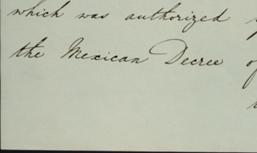 which was authorized
the Mexican Decree